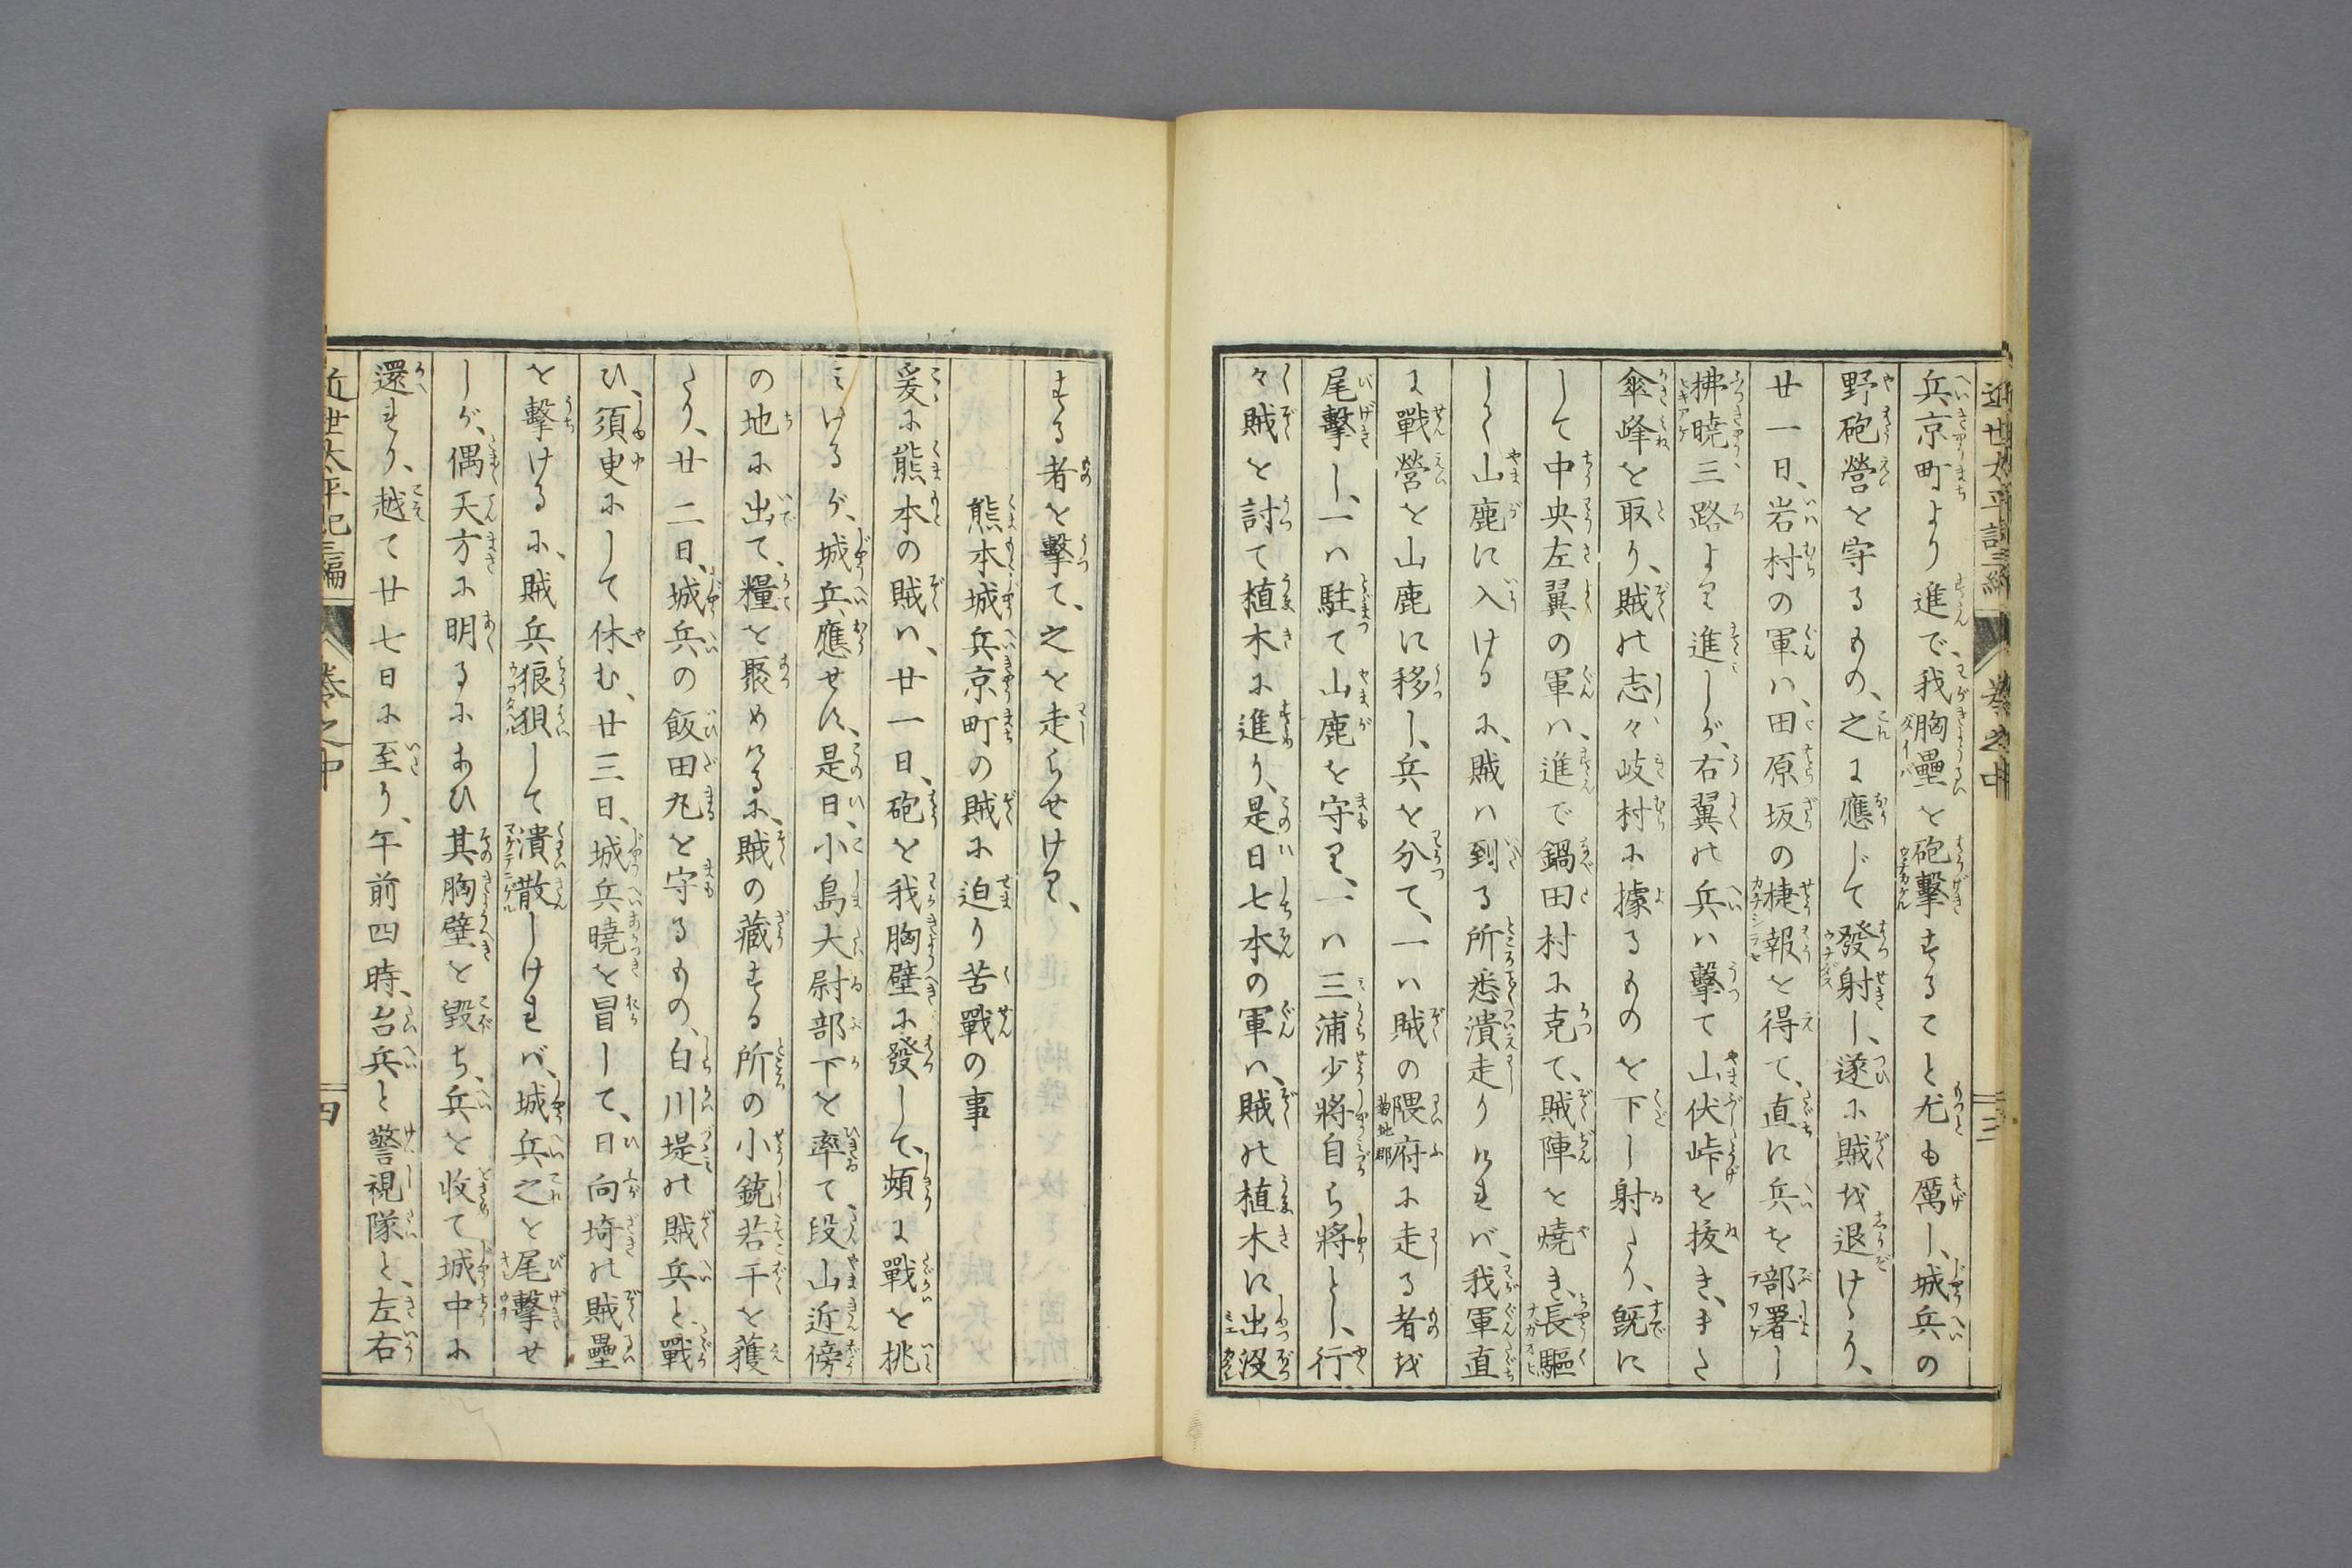 近世太平記三編 巻之中 三
兵京町より進で、我胸壘を砲擊することと尤も厲し、城兵の
野砲營を守るもの、之に應じて發射し、遂に賊を退けゝり、
廿一日、岩村の軍ハ、田原坂の捷報を得て、直に兵を部署し
拂曉三路より進しが、右翼の兵ハ擊て山伏峠を抜き、また
傘峰を取り、賊の志々岐村に據るものを下し射たり、既に
して中央左翼の軍ハ、進で鍋田村に克て、賊陣を燒き、長驅
しく山鹿に入けるに、賊ハ到る所悉潰走りければ、我軍直
に戰營を山鹿に移し、兵を分て、一ハ賊の隈府菊地郡に走る者を
尾擊し、一ハ駐て山鹿を守り、一ハ三浦少將自ら將とし、行
々賊を討て植木に進り、是日七本の軍ハ、賊の植木に出沒
する者を擊て、之を走らせけり、
熊本城兵京町の賊に迫り苦戰の事
爰に熊本の賊ハ、廿一日、砲を我胸壁に發して、頻に戰を挑
みけるが、城兵應せず、是日、小島大尉部下を率て、段山近傍
の地に出て、糧を聚めけるに、賊の藏する所の小銃若干を獲
たり、廿二日、城兵の飯田丸を守るもの、白川堤の賊兵と戰
ひ、須臾にして休む、廿三日、城兵曉を冒して、日向埼の賊壘
を擊けるに、賊兵狼狽して潰散しければ、城兵之を尾擊せ
しが、偶天方に明るにあひ其胸壁を毀ち、兵を收て城中に
還れり、越て廿七日に至り、午前四時、台兵と警視隊と、左右
近世太平記三編 巻之中 四